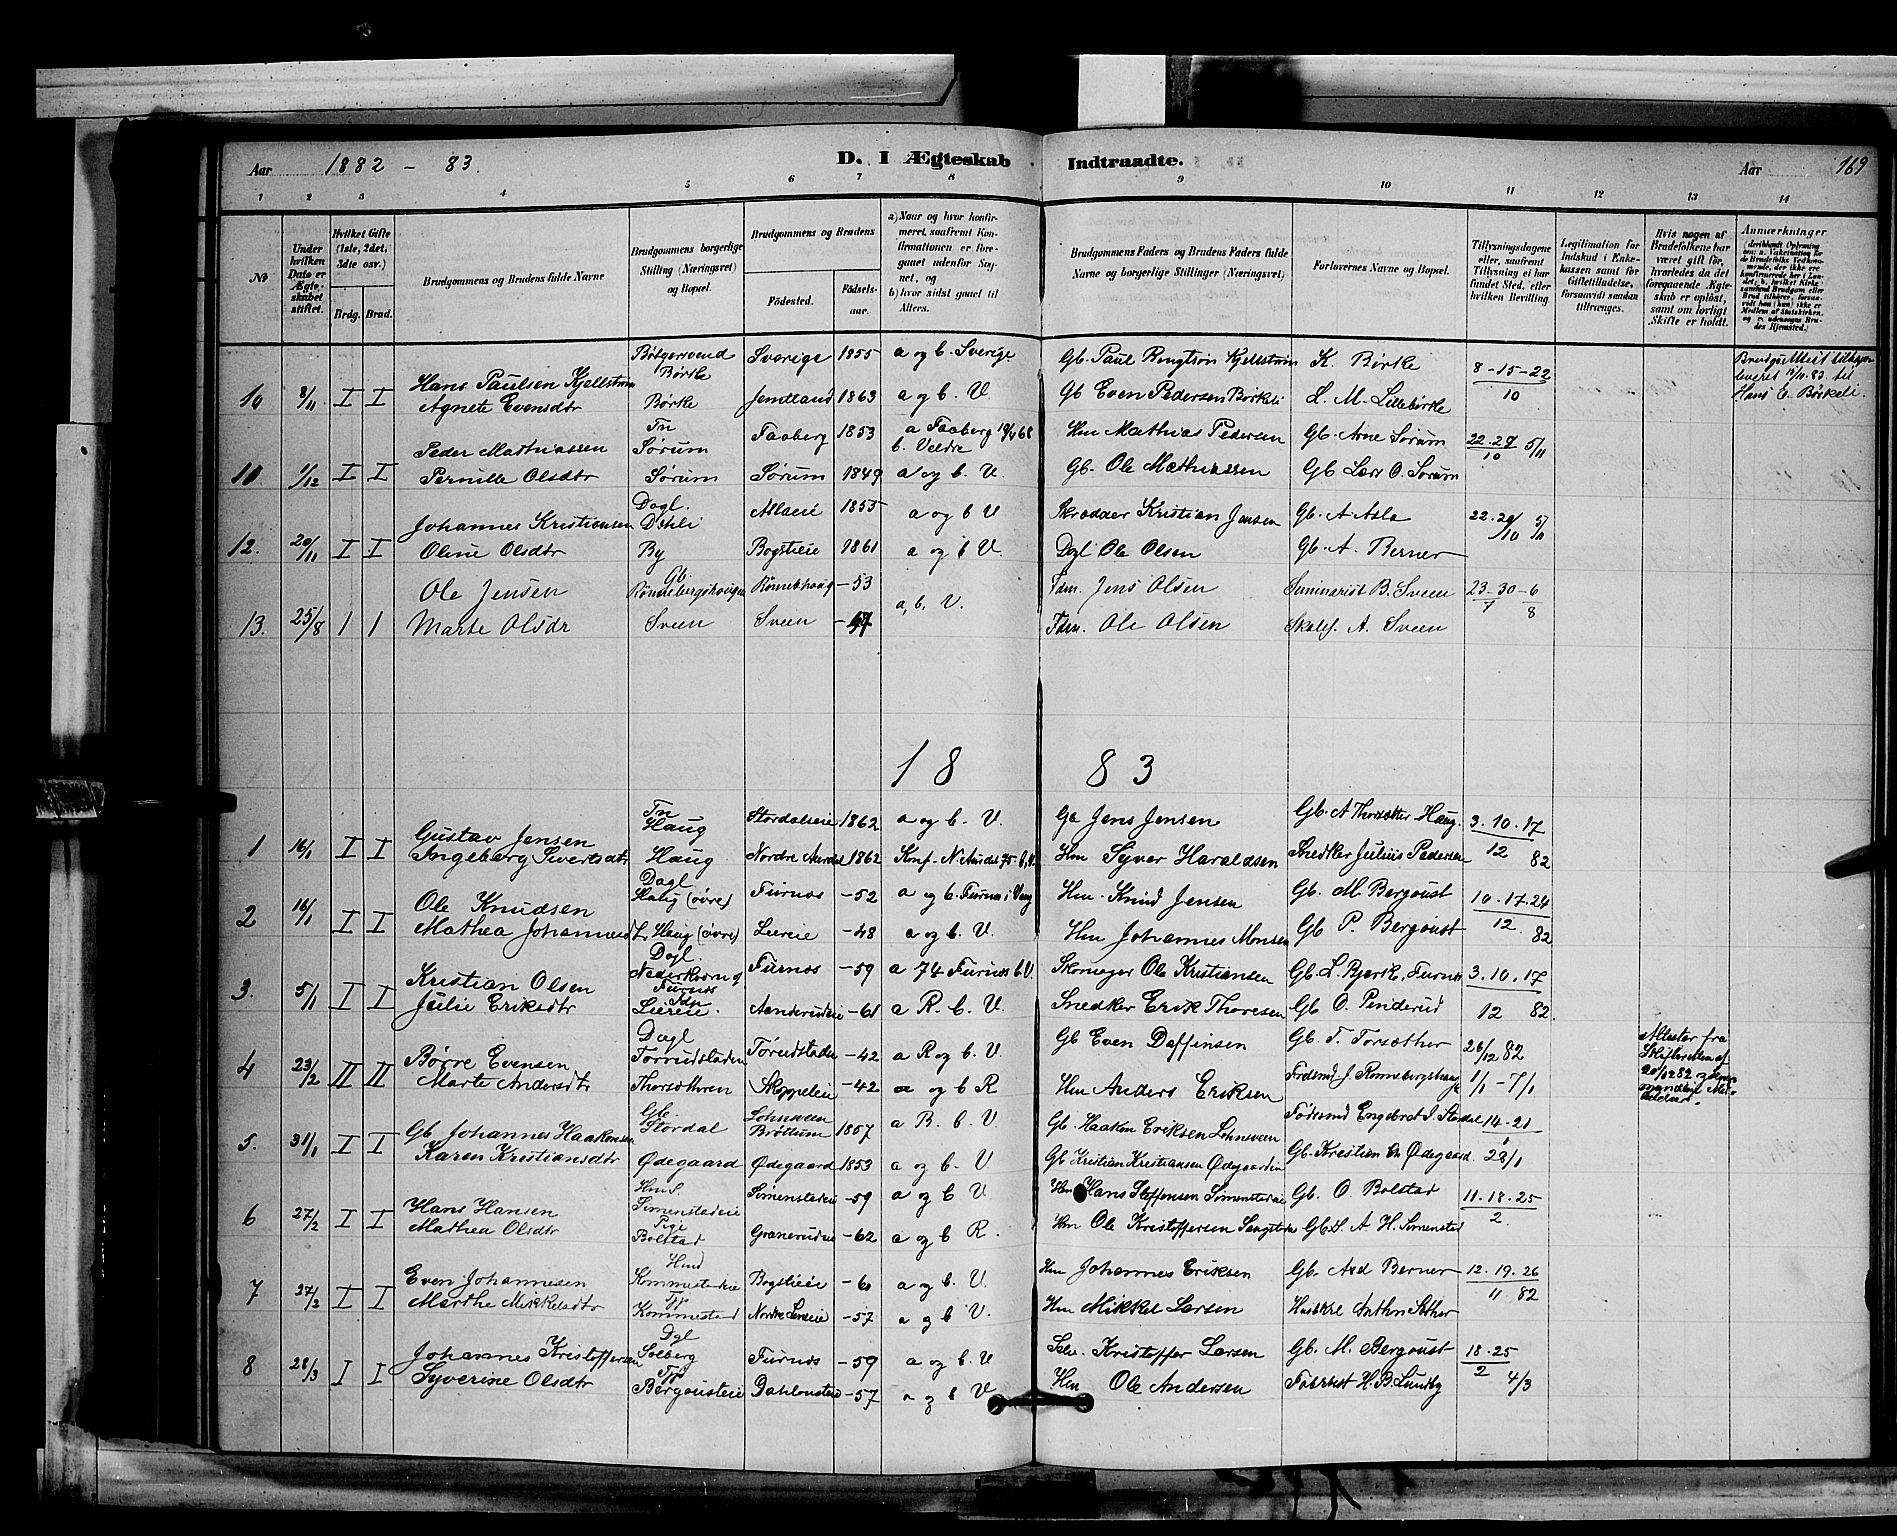 Aar 1882 - 83. D. I Ægteskab Indtraadte. Aar 169
1 2 3 4 5 6 7 8 9 10 11 12 13 14
№
Under hvilken Dato er Ægteskabet stiftet.
Hvilket Gifte (1ste, 2det, 3die osv.)
Brdg. Brud.
Brudgommens og Brudens fulde Navne
Brudgommens borgerlige Stilling (Næringsvei) og Bopæl.
Brudgommens og Brudens
Fødested. Fødselsaar.
a) Naar og hvor konfirmeret, saafremt Konfirmationen er foregaaet udenfor Sognet, og
b) hvor sidst gaaet til Alters.
Brudgommens Faders og Brudens Faders fulde Navne og borgerlige Stillinger (Næringsvei).
Forlovernes Navne og Bopæl.
Tillysningsdagene eller, saafremt Tillysning ei har fundet Sted, efter hvilken Bevilling.
Legitimation for Indskud i Enkekassen samt for Giftetilladelse, forsaavidt saadan tiltrænges.
Hvis nogen af Brudefolkene har været gift før, hvorledes da det foregaaende Ægteskab er opløst, samt om lovligt Skifte er holdt.
Anmærkninger
Bøtgersvend Sverige 1855 a og b. Sverige Gb. Paul Kjellstrøm K. Børke 8-15-22
Hans Paulsen Kjellstrøm Børke 10
10 8/11 I I Agnete Evensdtr Børke Jemtland 1863 a og b. V. Gb Even Pedersen Birkeli L. M. Lillebørke
leveret 83 til
Hans E. Børkeli.
Peder Mathiassen Tn Sørum Faaberg 1853 a Faaberg 68 b. Veldre Hm Mathias Pedersen Gb. Arne Sørum 22.29 5/11
10 1/12 I I Pernille Olsdtr Sørum Sørum 1849 a og b. V. Gb. Ole Mathiassen Gb Lars O. Sørum 10
Johannes Kristiansen Dagl. Dehli Aslaeie 1855 a og b V Skrædder Kristian Jensen Gb. A Asla 22.29/10 5/11
12. 20/11 I I Oline Olsdtr By Bogstieie 1861 a og b V. Dagl Ole Olsen Gb. A. Berner
Ole Jensen Gb. Rønnebergshaugen Rønnebhaug -53 a, b. V. Fdm. Jens Olsen Seminarist B. Sveen 23-30-6
13. 25/8 1 1 Marte Olsdr Sveen Sveen Fdm. Ole Olsen A. Sveen 7 8
1883
Gustav Jensen Tn Haug Stordalseie 1862 a og b. V. Gb Jens Jensen Gb. A Thorsæther Haug. 3.10.17
1 16/1 I I Ingeborg Sivertsdtr Haug Nordre Aurdal 1862 Knf. N. Aurdal 75 b. V. Hm Syver Haraldsen Snedker Julius Pedersen 12 82
Ole Knudsen Dagl Haug (øvre) Furnes -52 a og b. Furnes i Vang Hm. Knud Jensen Gb. M. Bergoust 10.17.24
2 16/1 I I Mathea Johannesdtr Haug (øvre) Leereie -48 a og b. V. Hm Johannes Monsen Gb P. Bergoust 12 82
Kristian Olsen Dagl. Furnes Furnes -59 a 74 Furnes b. V. Skomager Ole Kristiansen Gb. L. Bjerke, Furnes 3.10.17
3. 5/1 I I Julie Eriksdtr Leereie. Aanderudeie -61 a R. b. V. Snedker Erik Thoresen Gb O. Penderud 12 82.
Børre Evensen Dagl Torrudstaden Torudstaden -42 a R og b. V. Gb Even Daffinsen Gb. T. Torsæther 26/12 82
4 23/2 II II Marte Andersdtr Thorsæthren Skoppeleie -42 a og b R Hm Anders Eriksen J. Rønnebergshaug 1/1 - 7/1
Attester fra Skifteretten af 20/12 82
5. 31/1 I I Gb. Johannes Haakonsen Gb. Stordal Lohnsveen Brøttum 1857 a B. b. V. Gb. Haakon Eriksen Lohnsveen Engebret J. Stordal 14-21
Karen Kristiansdtr Ødegaard Ødegaard 1853 a og b. V Gb Kristian Kristiansen Ødegaarden Gb. Kristian Ødegaard 1 28/1
Hans Hansen Simenstadeie Simenstadeie -59 a og b V Hm Hans Steffensen Simenstadeie Gb. O. Bolstad 11.18.25
6 27/2 I I Mathea Olsdtr Pige Bolstad Granerudeie -62 a og b R. Hm Ole Kristoffersen Gb. A. H. Simenstad 2
Even Johannesen Hmd Kommestadeie Bogstieie -6 a og b. V. Hm Johannes Eriksen Gb. And Berner 12.19.26
7 27/2 I I Marthe Mikkelsdtr Tp Kommestad Nordre Leereie -57 a og b V. Hm Mikkel Larsen Anthn Sæther 11 82
Johannes Kristoffersen Dgl Solberg Furnes -59 a og b. V Selv. Kristoffer Larsen Gb. M. Bergoust 18.25
8 28/3 I I Syverine Olsdtr Tp Bergousteie Dahlensteie -57 a og b V. Hm Ole Andersen H. B. Lundby 2 4/3